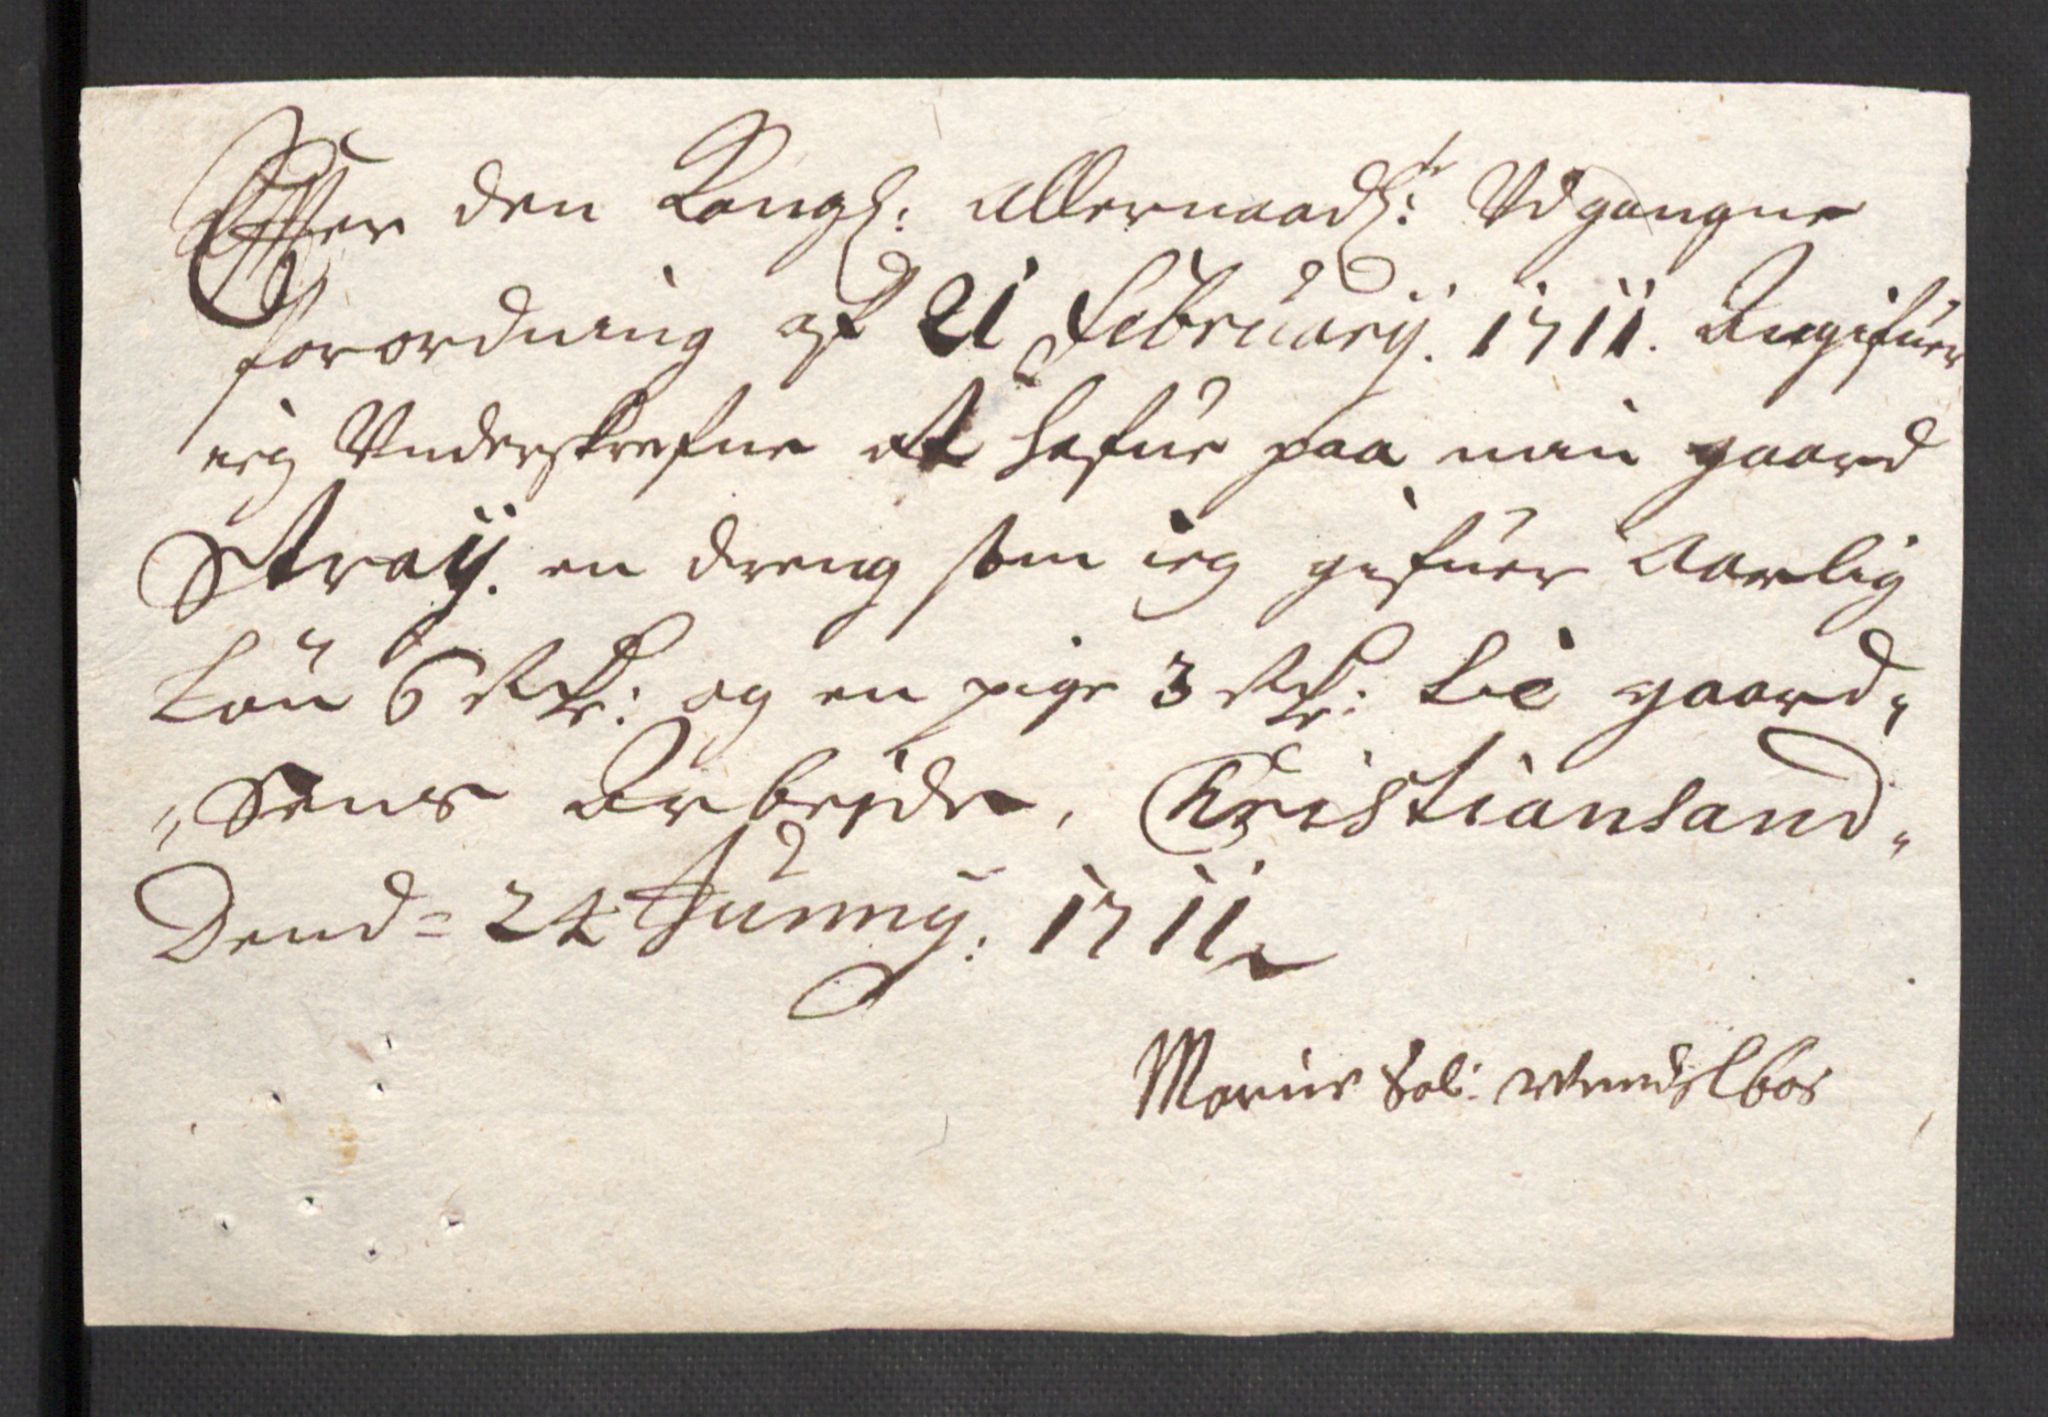 Efter den Kongl: Allernaadl:te Vdgangne
forordning af 21 february. 1711. Angifuer
ieg Vnderskrefne at hafue paa min gaard
Straÿ. en dreng som ieg gifuer Aarlig
Løn 6 Rdr: og en pige 3 Rdr: til gaard-
sens Arbejde, Christiansand
Dend 24 Junny: 1711
Marin Sal: Wendelbos